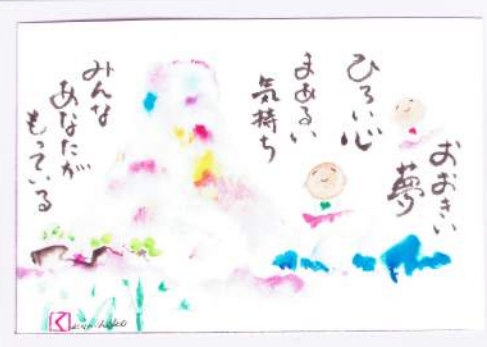 おおきい
夢
ひろい心
まあるい
気持ち
みんな
あなたが
もっている